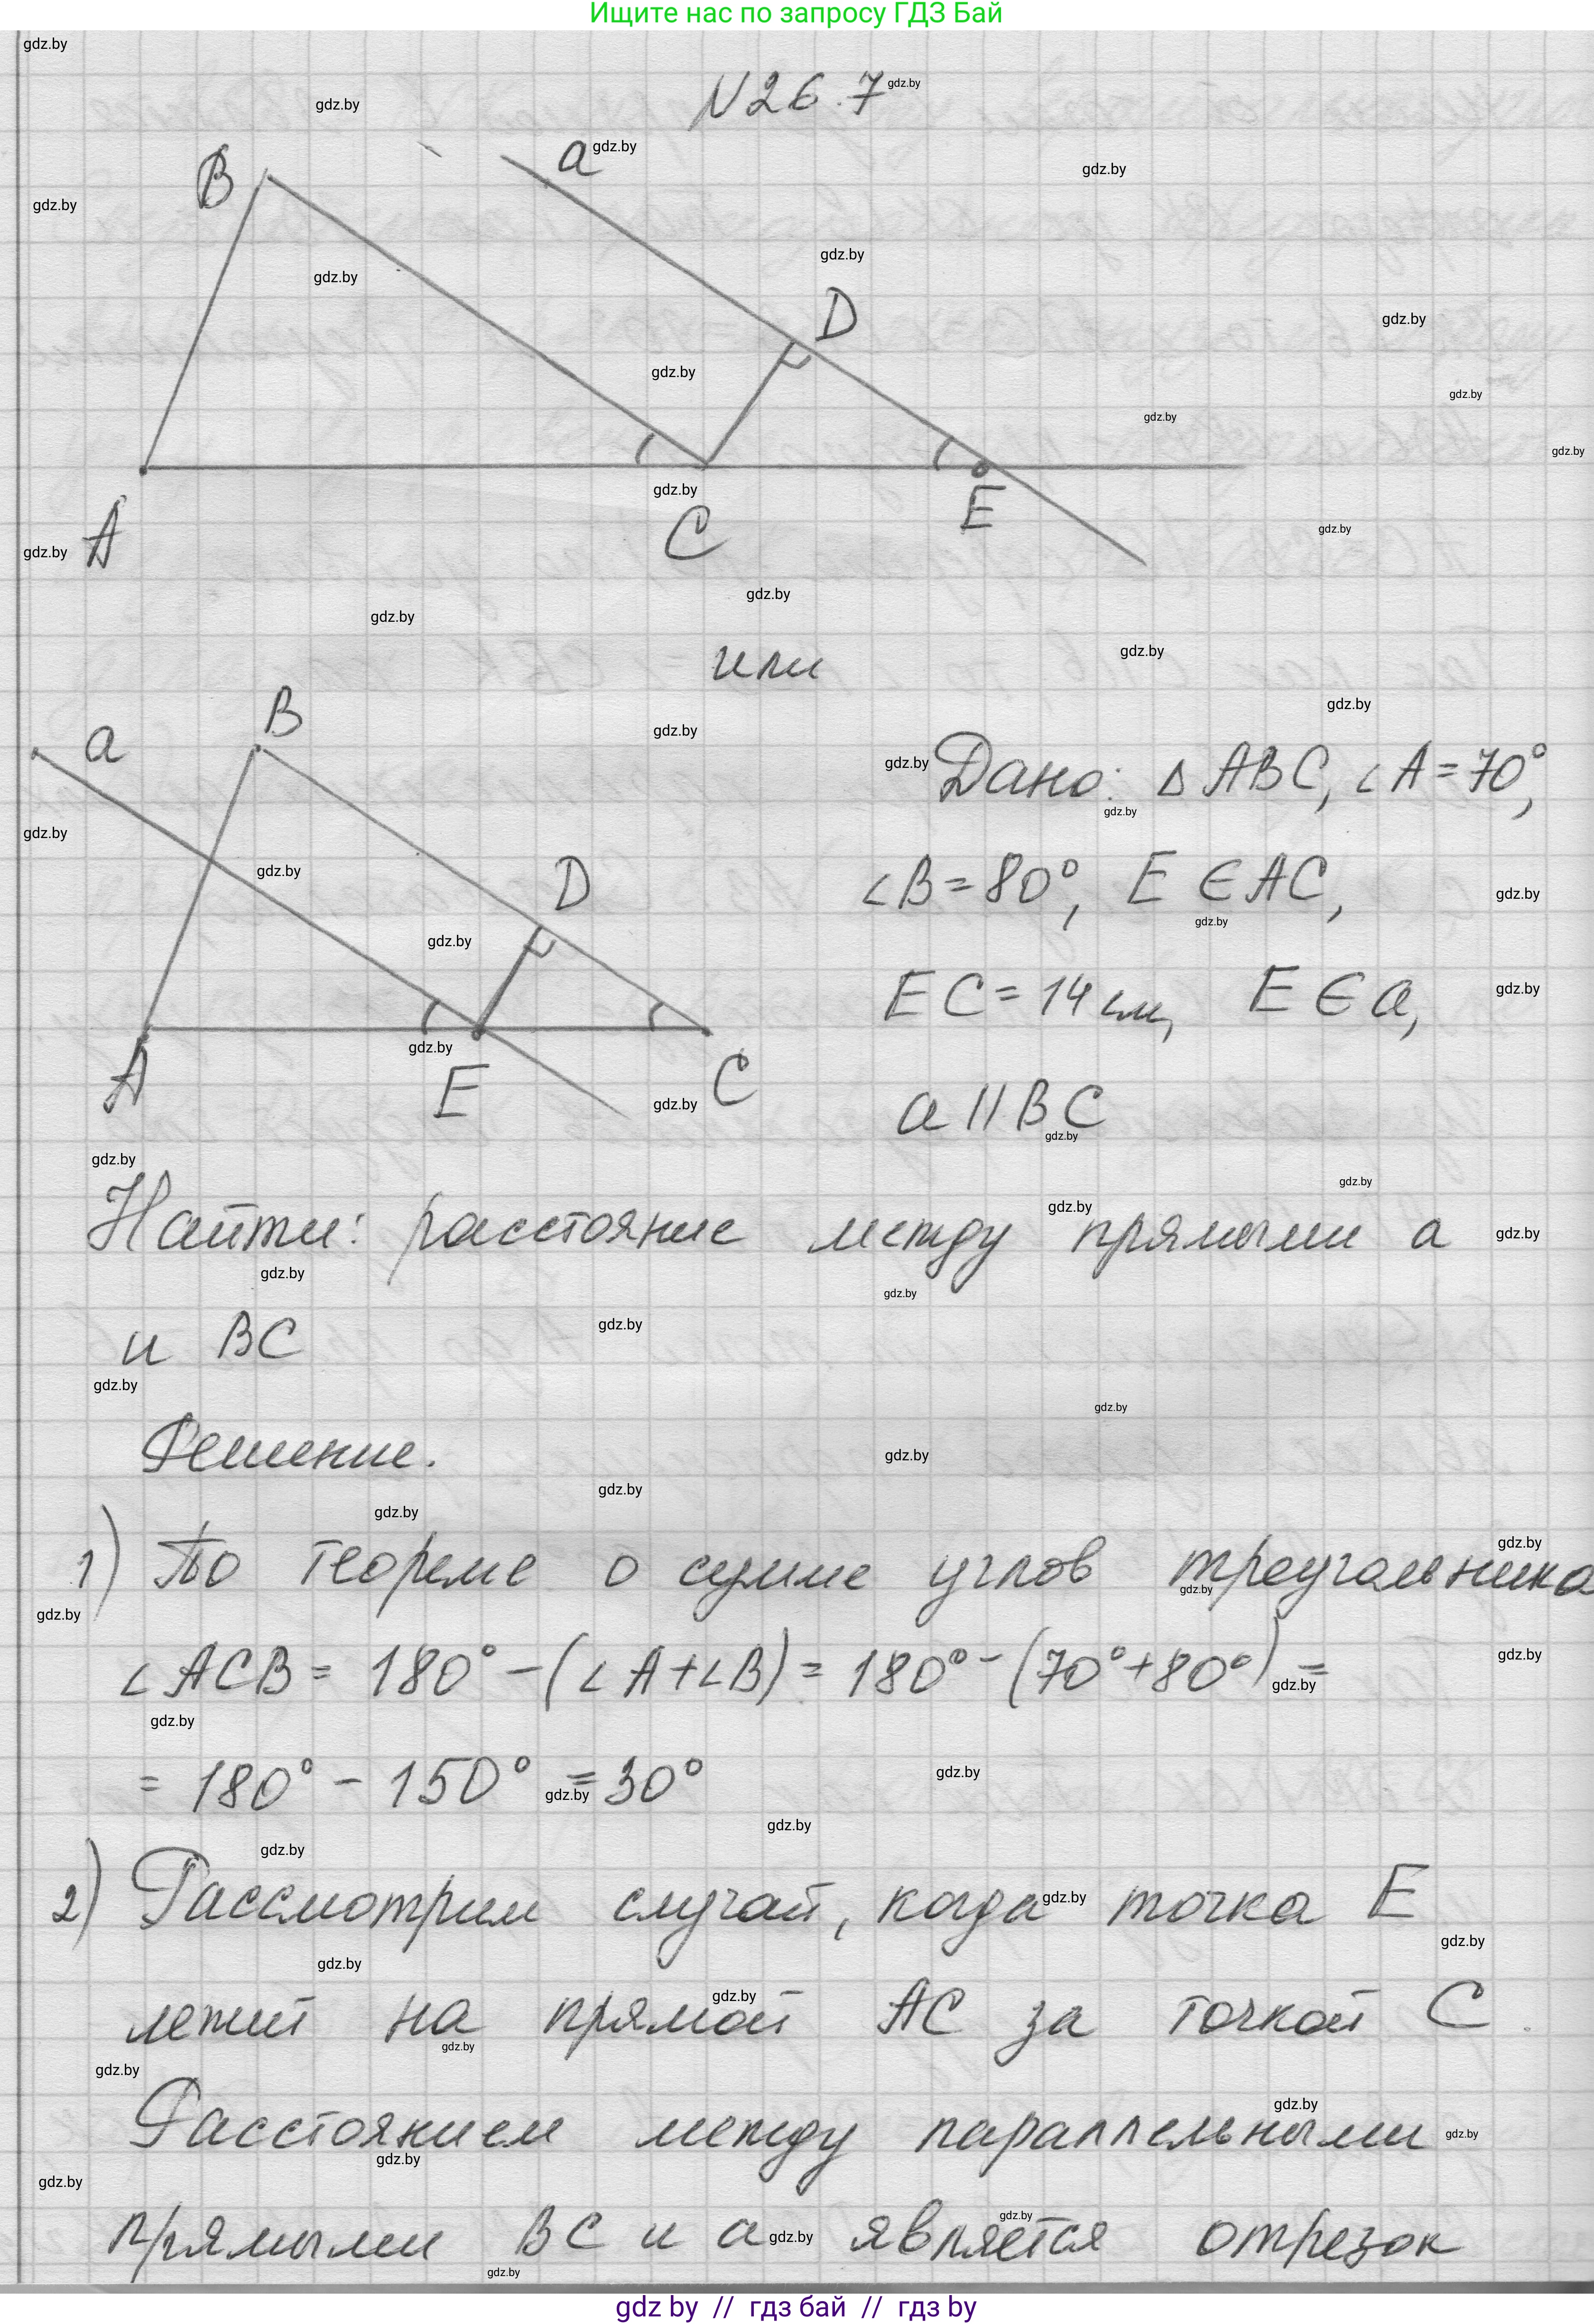 Ищите нас по запросу ГДЗ Бай
N 26.7
B
a
D
A
C
E
или
a
B
D
A
E
C
Дано: Δ ABC, ∠A = 70°,
∠B = 80°, E ∈ AC,
EC = 14 см, E ∈ a,
a || BC
Найти: расстояние между прямыми a
и BC
Решение.
1) По теореме о сумме углов треугольника
∠ACB = 180° - (∠A + ∠B) = 180° - (70° + 80°) =
= 180° - 150° = 30°
2) Рассмотрим случай, когда точка E
лежит на прямой AC за точкой C.
Расстоянием между параллельными
прямыми BC и a является отрезок
gdz by // гдз бай // гдз by
gdz.by